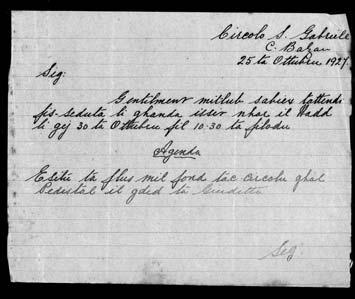 Circolo S. Gabriele
C. Balzan
25 ta Ottubru 1927.
Seg:
Gentilment mitlub sabiex tattendi
fis-seduta li ghanda issir nhar il Hadd
li gej 30 ta Ottubru fil 10-30 ta filodu
Agenda
Esitu ta flus mil fond tac-circolu ghal
Pedestal il gdid ta Giuditta
Seg: